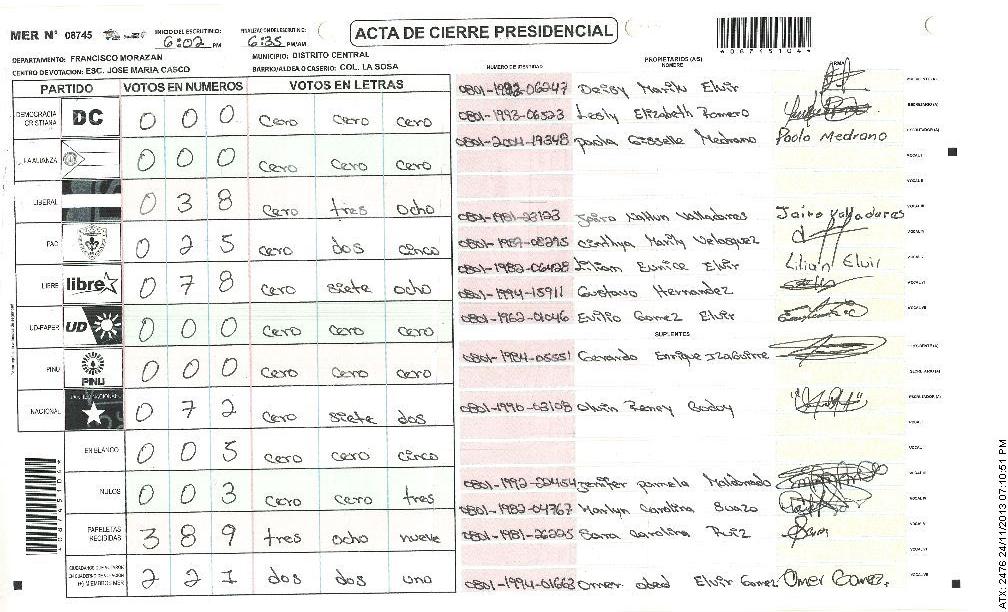 MER N° 08745
INICIO DEL ESCRUTINIO: 6:02 PM
FINALIZACION DEL ESCRUTINIO: 6:35 PM/AM
ACTA DE CIERRE PRESIDENCIAL
4087451044
DEPARTAMENTO: FRANCISCO MORAZAN
MUNICIPIO: DISTRITO CENTRAL
CENTRO DE VOTACION: ESC. JOSE MARIA CASCO
BARRIO/ALDEA O CASERIO: COL. LA SOSA
PARTIDO VOTOS EN NUMEROS VOTOS EN LETRAS
DEMOCRACIA CRISTIANA DC 0 0 0 cero cero cero
LA ALIANZA 0 0 0 cero cero cero
LIBERAL 0 3 8 cero tres ocho
PAC 0 2 5 cero dos cinco
LIBRE libre 0 7 8 cero siete ocho
UD-FAPER UD 0 0 0 cero cero cero
PINU PINU 0 0 0 cero cero cero
NACIONAL 0 7 2 cero siete dos
EN BLANCO 0 0 5 cero cero cinco
NULOS 0 0 3 cero cero tres
PAPELETAS RECIBIDAS 3 8 9 tres ocho nueve
2 2 1 dos dos uno
NUMERO DE IDENTIDAD
PROPIETARIOS (AS)
NOMBRE
FIRMA
0801-1982-06247 Deissy Marili Elvir
0801-1993-06523 Lesly Elizabeth Romero
0801-2001-19348 paola Gisselle Medrano Paola Medrano
0801-1981-23123 Jairo Valladares Jairo Valladares
0801-1989-08295 Cinthya Marily Velasquez
0801-1982-06428 Liliam Eunice Elvir Lilian Elvir
0801-1994-15911 Gustavo Hernandez
0801-1962-01046 Evilio Gomez Elvir
SUPLENTES
0801-1984-05551 Gerardo Enrique Izaguirre
0801-1996-03108 Godoy
Jenifer pamela Maldonado
0801-1982-04767 Marlyn Carolina Suazo
0801-1981-26205 Sara Carolina Ruiz Sara
0801-1994-01663 Omer obed Elvir Gomez Omer Gomez.
ATX: 2476 24/11/2013 07:10:51 PM